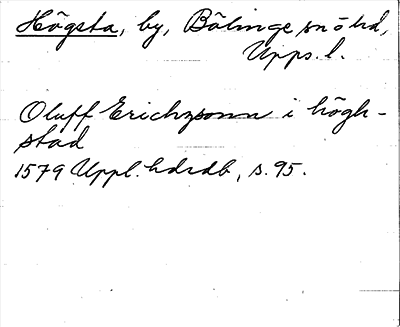 Högsta, by, Bälinge sn o hd,
Upps. l.
Oluff Erichzsonn i högh-
stad
1579 Uppl. hdrdb, s. 95.